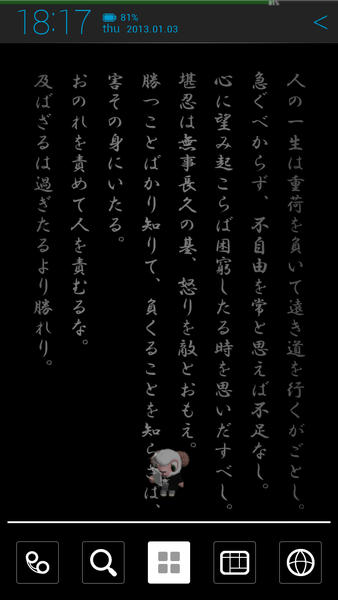 81%
18:17
81%
thu 2013.01.03
人の一生は重荷を負いて遠き道を行くがごとし。
急ぐべからず、不自由を常と思えば不足なし。
心に望み起こらば困窮したる時を思いだすべし。
堪忍は無事長久の基、怒りを敵とおもえ。
勝つことばかり知りて、負くることを知ら は、
害その身にいたる。
おのれを責めて人を責むるな。
及ばざるは過ぎたるより勝れり。